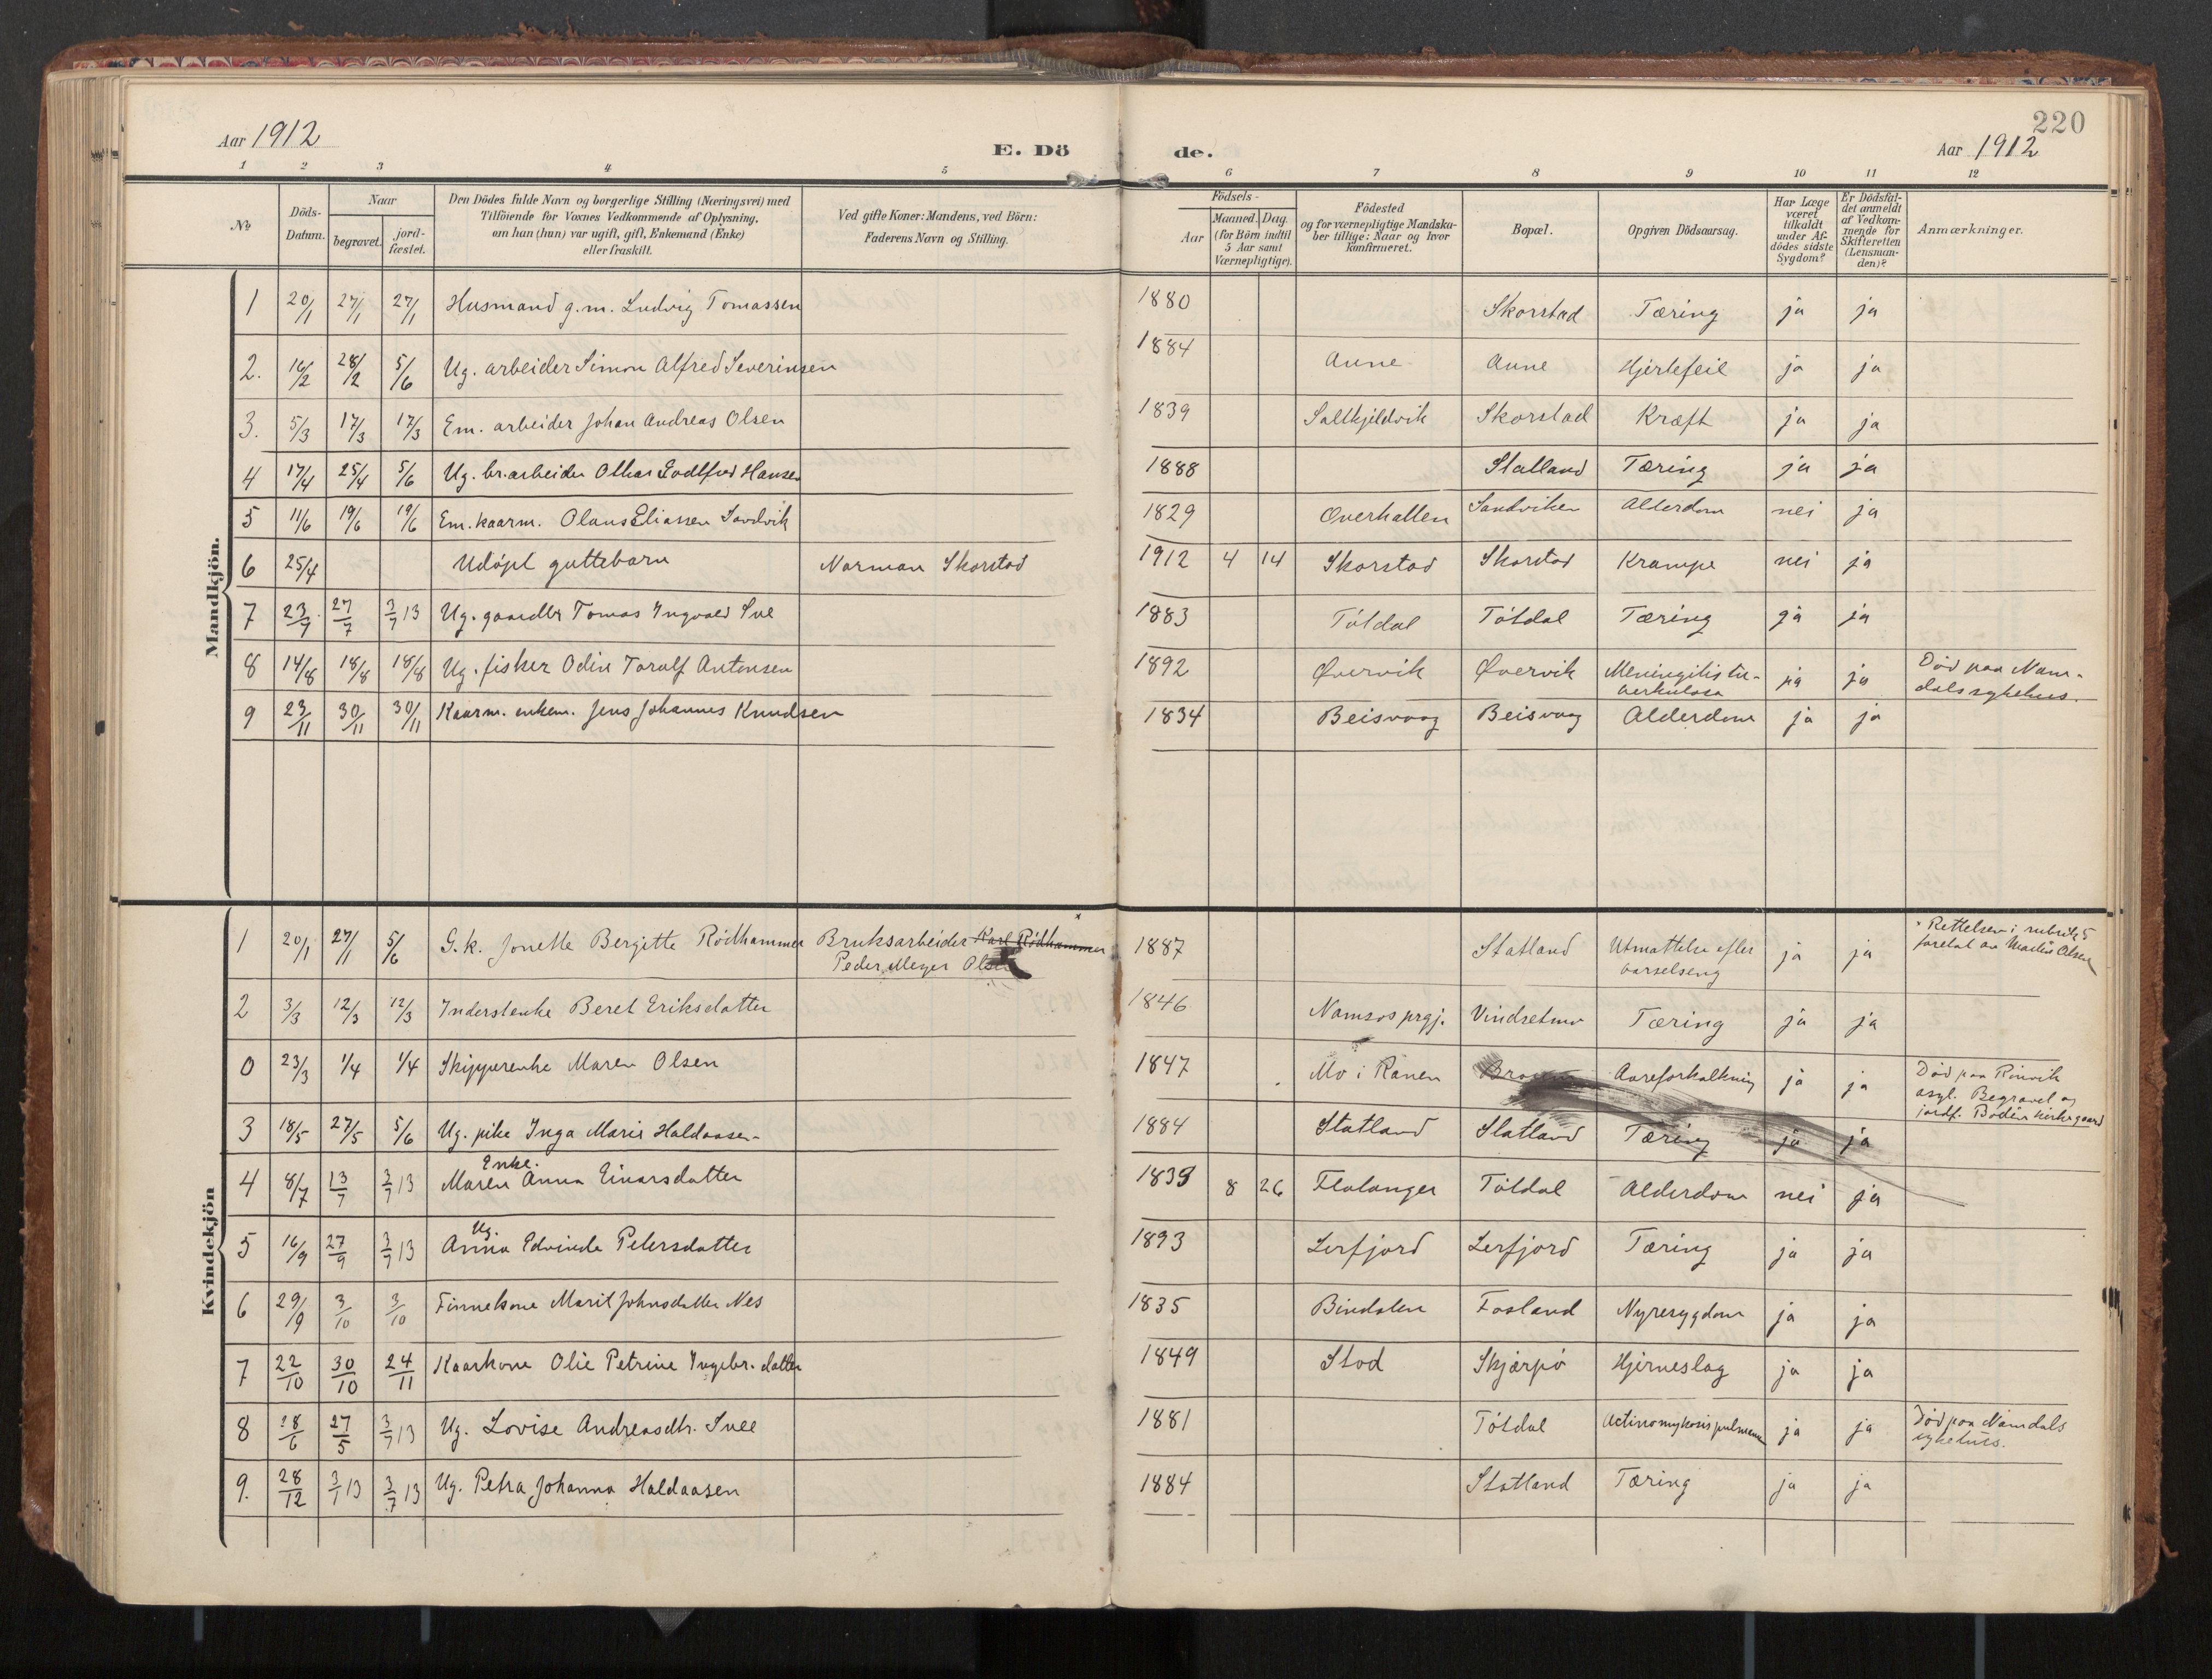 220
Aar 1912
E. Dö
de.
Aar 1912
1 2 3 4 5 6 7 8 9 10 11 12
№
Döds-Datum.
Naar
begravet.
jord-fæstet.
Den Dödes fulde Navn og borgerlige Stilling (Næringsvei) med
Tilföiende for Voxnes Vedkommende af Oplysning,
om han (hun) var ugift, gift, Enkemand (Enke)
eller fraskilt.
Ved gifte Koner: Mandens, ved Börn:
Faderens Navn og Stilling.
Födsels-
Aar
Maaned. Dag.
(for Börn indtil
5 Aar samt
Værnepligtige).
Födested
og for værnepligtige Mandska-
ber tillige: Naar og hvor
konfirmeret.
Bopæl.
Opgiven Dödsaarsag.
Har Læge
været
tilkaldt
under Af-
dödes sidste
Sygdom?
Er Dödsfal-
det anmeldt
af Vedkom-
mende for
Skifteretten
(Lensman-
den)?
Anmærkninger.
Mandkjön.
1 20/1 27/1 27/1 Husmand g.m. Ludvig Tomassen 1880 Skorstad Tæring ja ja
2. 16/2 28/2 5/6 Ug. arbeider Simon Alfred Severinsen 1884 Aune Aune Hjertefeil ja ja
3. 5/3 17/3 17/3 Em. arbeider Johan Andreas Olsen 1839 Saltkjeldvik Skorstad Kræft ja ja
4 17/4 25/4 5/6 Ug. br.arbeider Othar Godtfred Hansen 1888 Statland Tæring ja ja
5 11/6 19/6 19/6 Em. kaarm. Olaus Eliassen Sandvik 1829 Overhallen Sandviken Alderdom nei ja
6 25/4 Udøpt guttebarn Norman Skorstad 1912 4 14 Skorstad Skorstad Krampe nei ja
7 23/7 27/7 3/7 13 Ug. gaardbr Tomas Ingvald Sve 1883 Tøtdal Tøtdal Tæring ja ja
8 14/8 18/8 18/8 Ug. fisker Odin Toralf Antonsen 1892 Øvervik Øvervik Meningitis tu-
berkulosa ja ja Død paa Nam-
dals sykehus.
9 23/11 30/11 30/11 Kaarm. enkem. Jens Johannes Knudsen 1834 Beisvaag Beisvaag Alderdom ja ja
Kvindekjön
1 20/1 27/1 5/6 G.k. Jonette Bergitte Rödhammer Bruksarbeider Karl Rödhammer x
Peder Meyer Olsen 1887 Statland Utmattelse efter
barselseng ja ja x Rettelsen i rubrik 5
foretat av Martin Olsen
2 3/3 12/3 12/3 Inderstenke Beret Eriksdatter 1846 Namsos prgj. Vindsetmo Tæring ja ja
0 23/3 1/4 1/4 Skipperenke Maren Olsen 1847 Mo i Ranen Aareforkalkning ja ja Død paa Rönvik
asyl. Begravet og
jordf. Bodin kirkegaard
3 18/5 27/5 5/6 Ug. pike Inga Marie Haldaasen 1884 Statland Statland Tæring ja ja
Enke.
4 8/7 13/7 3/7 13 Maren Anna Einarsdatter 1839 8 26 Flatanger Tøtdal Alderdom nei ja
Ug.
5 16/9 27/9 3/7 13 Anna Edvinda Petersdatter 1893 Lerfjord Lerfjord Tæring ja ja
6 29/9 3/10 3/10 Finnekone Marit Johnsdatter Nes 1835 Bindalen Fosland Nyresygdom ja ja
7 22/10 30/10 24/11 Kaarkone Olie Petrine Ingebr.datter 1849 Stod Skjærpö Hjerneslag ja ja
8 18/6 27/5 3/7 13 Ug. Lovise Andreasdtr. Svee 1881 Tøtdal Actinomykosis pulmonum ja ja Død paa Namdals
sykehus.
9. 28/12 3/1 13 3/7 13 Ug. Petra Johanna Haldaasen 1884 Statland Tæring ja ja